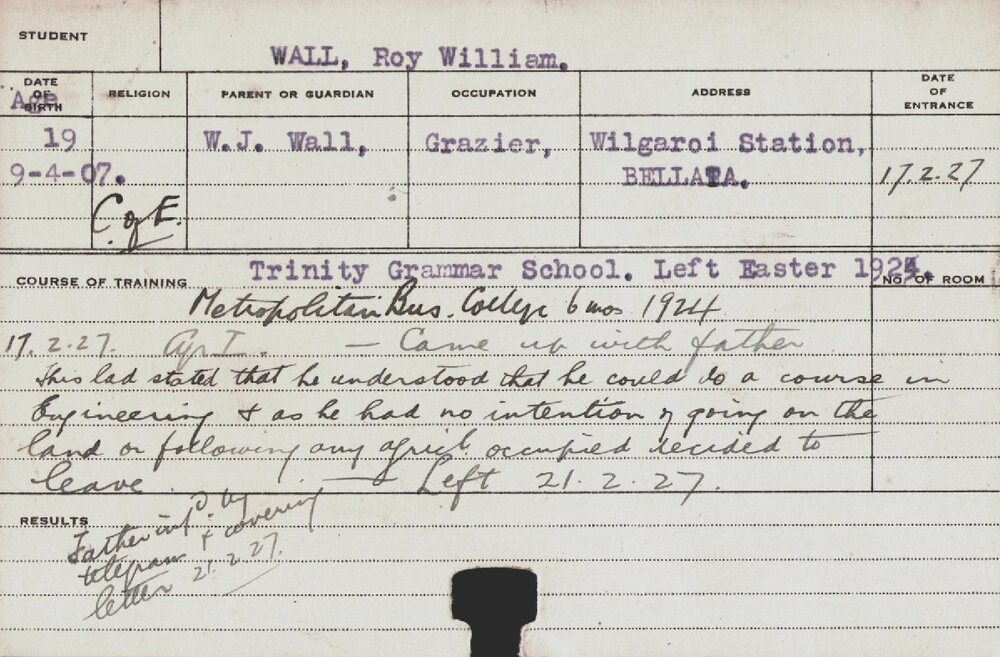 STUDENT
WALL, Roy William.
DATE OF BIRTH
Age
RELIGION
PARENT OR GUARDIAN
OCCUPATION
ADDRESS
DATE OF ENTRANCE
19
W.J. Wall,
Grazier,
Wilgaroi Station,
9-4-07.
BELLATA.
17.2.27
C. of E.
COURSE OF TRAINING
Trinity Grammar School. Left Easter 1924.
NO. OF ROOM
Metropolitan Bus. College 6 mos 1924
17.2.27. Agr I. — Came up with father
This lad stated that he understood that he could do a course in
Engineering & as he had no intention of going on the
land or following any agricl. occupied decided to
leave — Left 21.2.27.
RESULTS
Father infd. by
telegram & covering
letter 21.2.27.